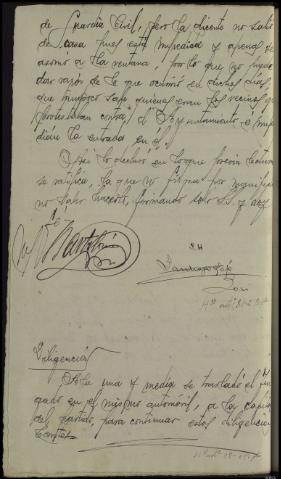 de Guardia Civil, pero la dicente no salió
de casa pues está impedida y apenas se
asomó a la ventana, por lo que no puede
dar razón de lo que ocurrió en dichos días,
que tampoco sabe quienes eran los vecinos que
protestaban contra el Ayuntamiento e impe-
dían la entrada en él.
Así lo declara en lo que previa lectura
se ratifica, la que no firma por manifestar
no saber hacerlo, firmando solo S.S. y doy
fe.
Diligencia
A la una y media se trasladó el Juz-
gado en el mismo automóvil, a la capital
del partido, para continuar estas diligencias